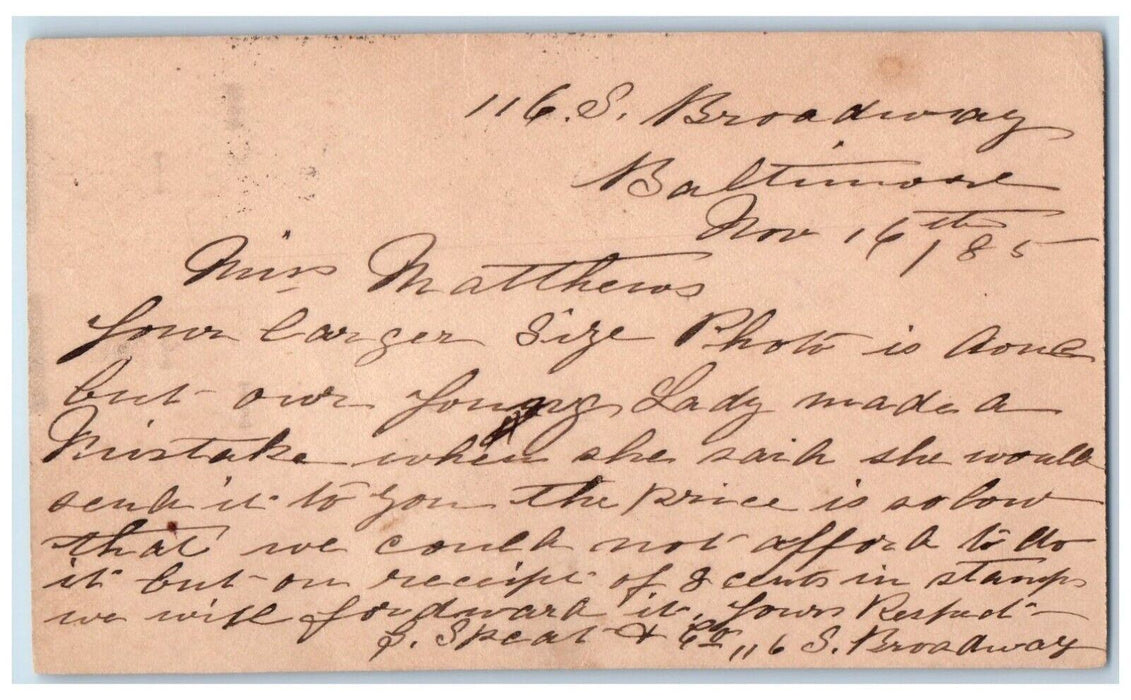 116. S. Broadway
Baltimore
Nov 16th /85
Miss Matthews
Your larger Size Photo is done
but our Young Lady made a
Mistake when she said she would
send it to you the price is so low
that we could not afford to do
it but on receipt of 8 cents in stamps
we will fordward it. Yours Respect
& Co 116 S. Broadway